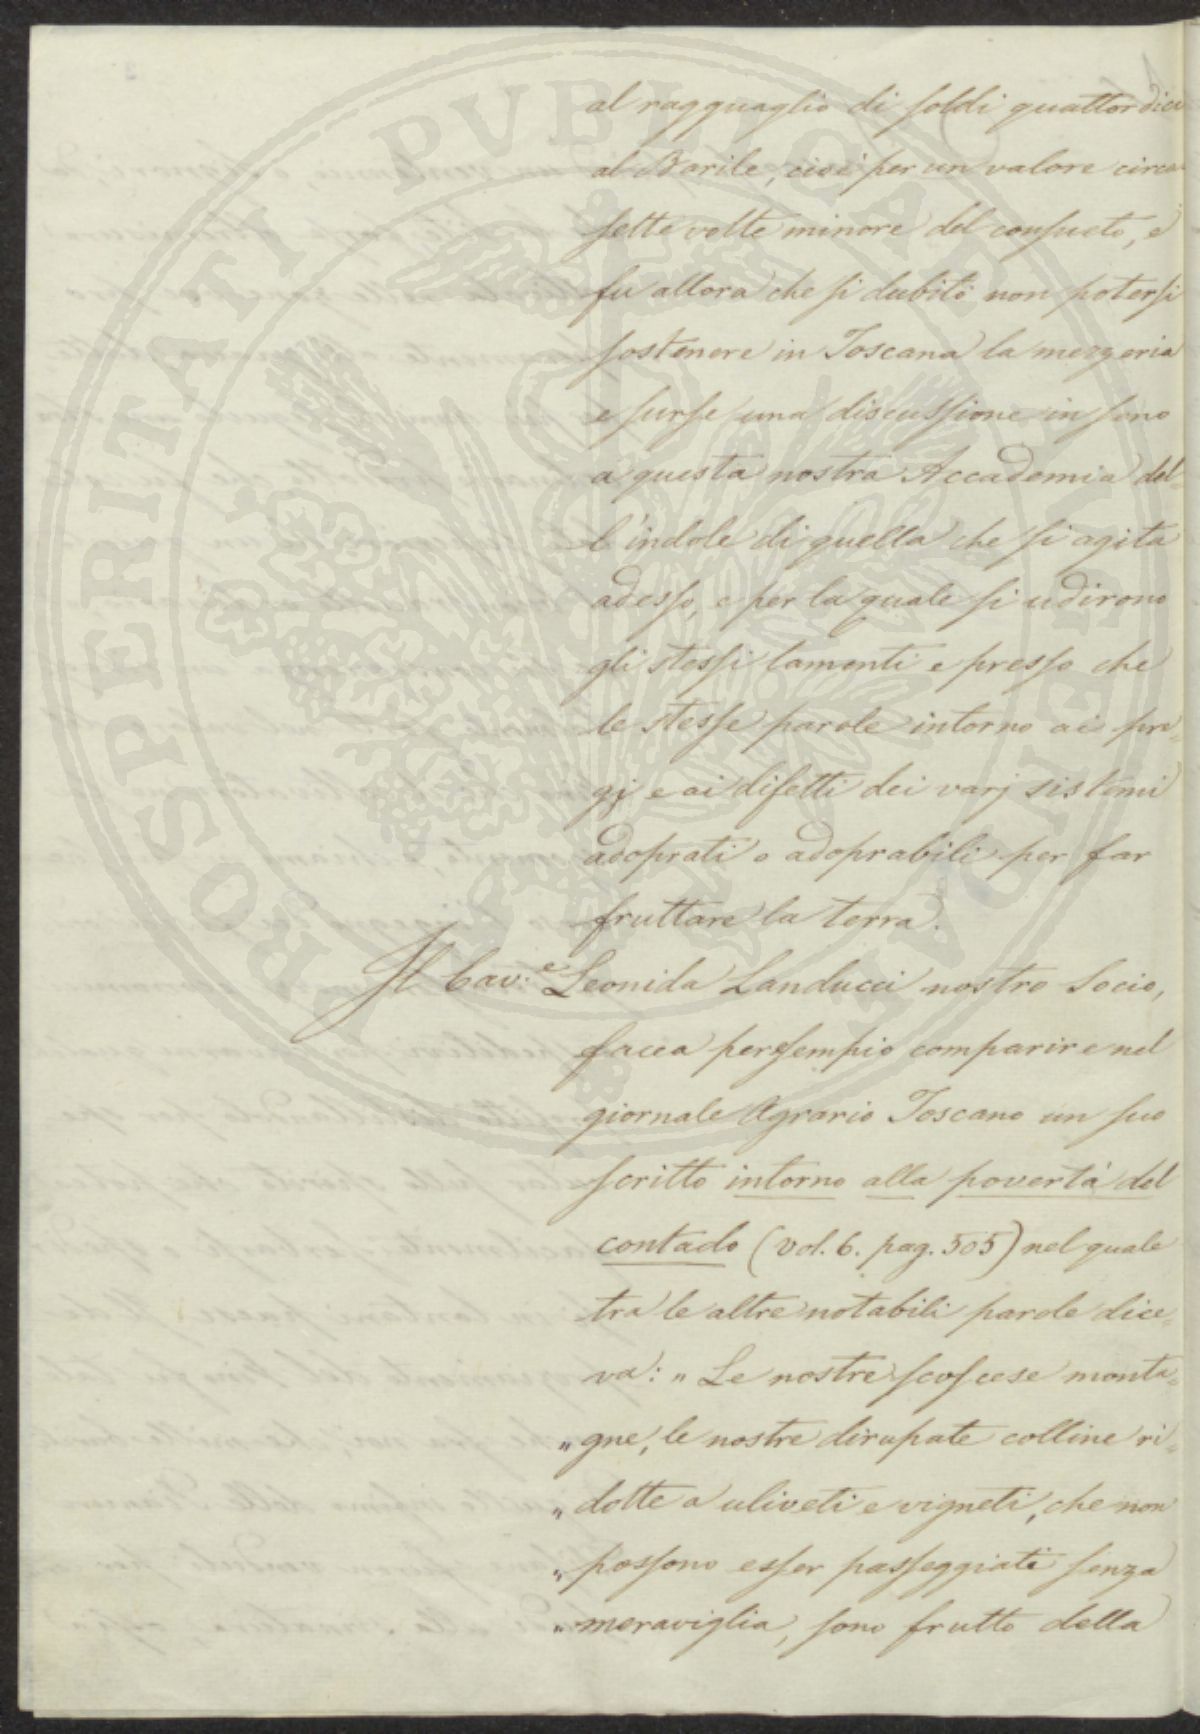 al ragguaglio di soldi quattordici
al Barile, cioè per un valore circa
sette volte minore del consueto, e
fu allora che si dubitò non potersi
sostenere in Toscana la mezzeria
e surse una discussione in seno
a questa nostra Accademia del-
l'indole di quella che si agita
adesso, e per la quale si udirono
gli stessi lamenti e presso che
le stesse parole intorno ai pre-
gj e ai difetti dei varj sistemi
adoprati o adoprabili per far
fruttare la terra.
Il Cav:e Leonida Landucci nostro Socio,
facea per esempio comparire nel
giornale Agrario Toscano un suo
scritto intorno alla povertà del
contado (vol. 6. pag. 505) nel quale
tra le altre notabili parole dice-
va: „ Le nostre scoscese monta-
„ gne, le nostre dirupate colline ri-
„ dotte a uliveti e vigneti, che non
„ possono esser passeggiati senza
„ meraviglia, sono frutto della
PROSPERITATI PVBLICAE